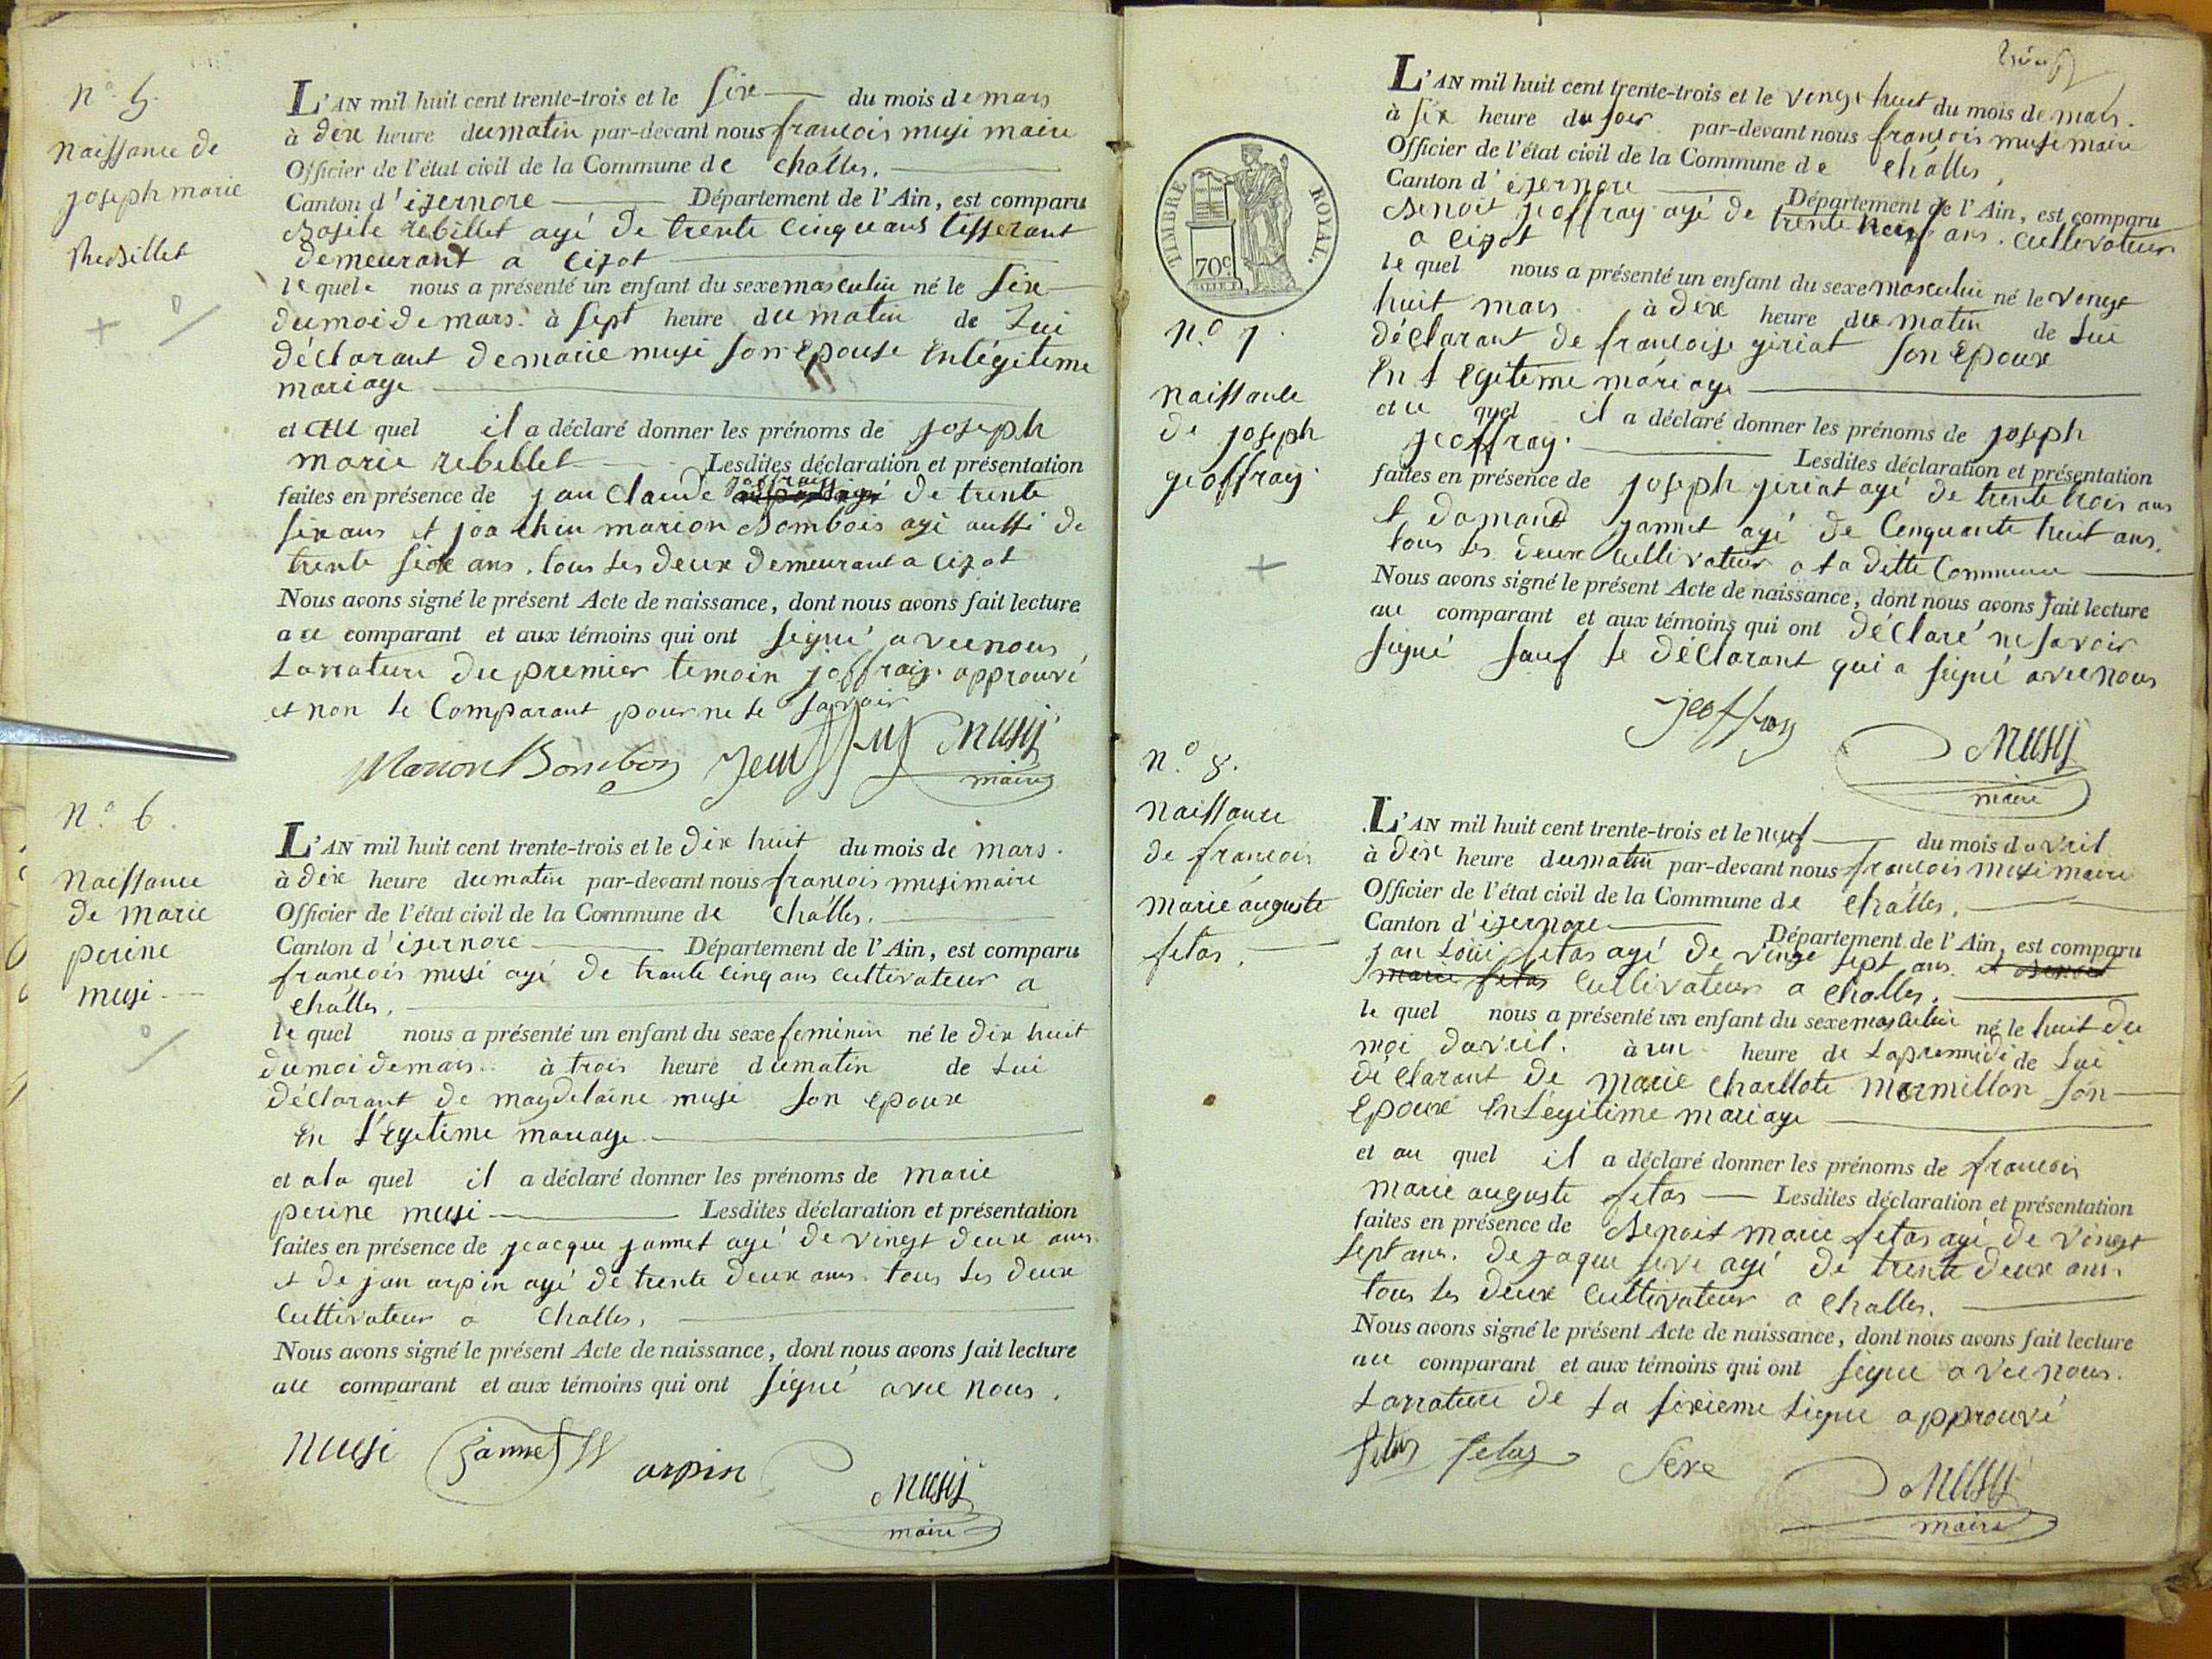 n.o 5.
naissance de
joseph marie
Rebillet
L'AN mil huit cent trente-trois et le six du mois de mars
à dix heure du matin par-devant nous francois musi maire
Officier de l'état civil de la Commune de challes.
Canton d'izernore Département de l'Ain, est comparu
Basile rebillet agé de trente cinq ans tisserant
demeurant a cizot
le quel nous a présenté un enfant du sexe masculin né le six
du moi de mars. à sept heure du matin de Lui
déclarant de marie musi son epouse en légitime
mariage
et au quel il a déclaré donner les prénoms de joseph
marie rebellet Lesdites déclaration et présentation
joffray
faites en présence de jau claude de trente
six ans et joachin marion Bombois agé aussi de
trente six ans. tous les deux demeurant a cizot
Nous avons signé le présent Acte de naissance, dont nous avons fait lecture
au comparant et aux témoins qui ont signé avec nous
Larrature du premier temoin joffray. approuvé
et non le Comparant pour ne le savoir
Marion Bombois Jeuffray musy
maire
n.o 6.
naissance
de marie
perine
musi
L'AN mil huit cent trente-trois et le dix huit du mois de mars.
à dix heure du matin par-devant nous francois musi maire
Officier de l'état civil de la Commune de challes.
Canton d'izernore Département de l'Ain, est comparu
francois musi agé de trante cinq ans cultivateur a
challes,
le quel nous a présenté un enfant du sexe feminin né le dix huit
du moi de mars.. à trois heure du matin de Lui
déclarant de magdelaine musi son epouse
en légitime mariage
et a la quel il a déclaré donner les prénoms de marie
perine musi Lesdites déclaration et présentation
faites en présence de jeacque jannet agé de vingt deux ans
et de jan arpin agé de trente deux ans tous les deux
Cultivateur a challes,
Nous avons signé le présent Acte de naissance, dont nous avons fait lecture
au comparant et aux témoins qui ont signé avec nous.
musi jannet arpin musy
maire
TIMBRE ROYAL.
70c
n.o 7.
naissance
de joseph
geoffray
L'AN mil huit cent trente-trois et le vingt huit du mois de mars.
à six heure du soir par-devant nous francois musi maire
Officier de l'état civil de la Commune de challes,
Canton d'izernore Département de l'Ain, est comparu
Benoit jeoffray agé de trente neuf ans. cultivateur
a cizot
le quel nous a présenté un enfant du sexe masculin né le vingt
huit mars à dix heure du matin de Lui
déclarant de francoise geriat son epouse
en légitime mariage
et u quel il a déclaré donner les prénoms de joseph
jeoffray. Lesdites déclaration et présentation
faites en présence de joseph jeriat agé de trente trois ans
et domand jannet agé de cenquante huit ans.
tous les deux cultivateur a la ditte Commune
Nous avons signé le présent Acte de naissance, dont nous avons fait lecture
au comparant et aux témoins qui ont déclaré ne savoir
signé sauf le déclarant qui a signé avec nous
jeoffray musy
maire
n.o 8.
naissance
de francois
marie auguste
fetas.
L'AN mil huit cent trente-trois et le neuf du mois d'avril
à dix heure du matin par-devant nous francois musi maire
Officier de l'état civil de la Commune de challes.
Canton d'izernore Département de l'Ain, est comparu
jan Loui fetas agé de vingt sept ans. et Benoit
marie fetas cultivateur a challes.
le quel nous a présenté un enfant du sexe masculin né le huit du
moi davril. à un heure de Lapremidi de Lui
déclarant de marie charllote mermillon son
epouse en légitime mariage
et au quel il a déclaré donner les prénoms de francois
marie auguste fetas Lesdites déclaration et présentation
faites en présence de Benoit marie fetas agé de vingt
sept ans. de jaque seve agé de trente deux ans
tous les deux cultivateur a challes.
Nous avons signé le présent Acte de naissance, dont nous avons fait lecture
au comparant et aux témoins qui ont signé avec nous.
Larrature de la sixieme Ligne approuvé
fetas fetas Seve musy
maire